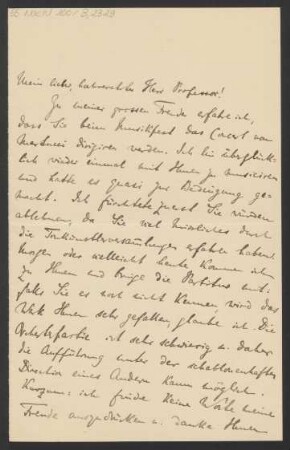 Mein lieber, hochverehrter Herr Professor!
Zu meiner grossen Freude erfahre ich,
dass Sie beim Musikfest das Concert von
dirigiren werden. Ich bin überglück-
lich wieder einmal mit Ihnen zu musiciren
und hatte es quasi zur Bedingung ge-
macht. Ich fürchtete zuerst Sie würden
ablehnen, da Sie viel durch
die Tonkünstlerversammlungen erfahren haben.
Morgen oder vielleicht heute komme ich
zu Ihnen und bringe die Partitur mit.
falls Sie es noch nicht kennen, wird das
Werk Ihnen sehr gefallen glaube ich. Die
Orchesterfarbe ist sehr schwierig u. daher
die Aufführung unter der schablonenhaften
Direction eines Andern kaum möglich.
Kurzum: ich finde keine Worte meine
Freude auszudrücken u. danke Ihnen